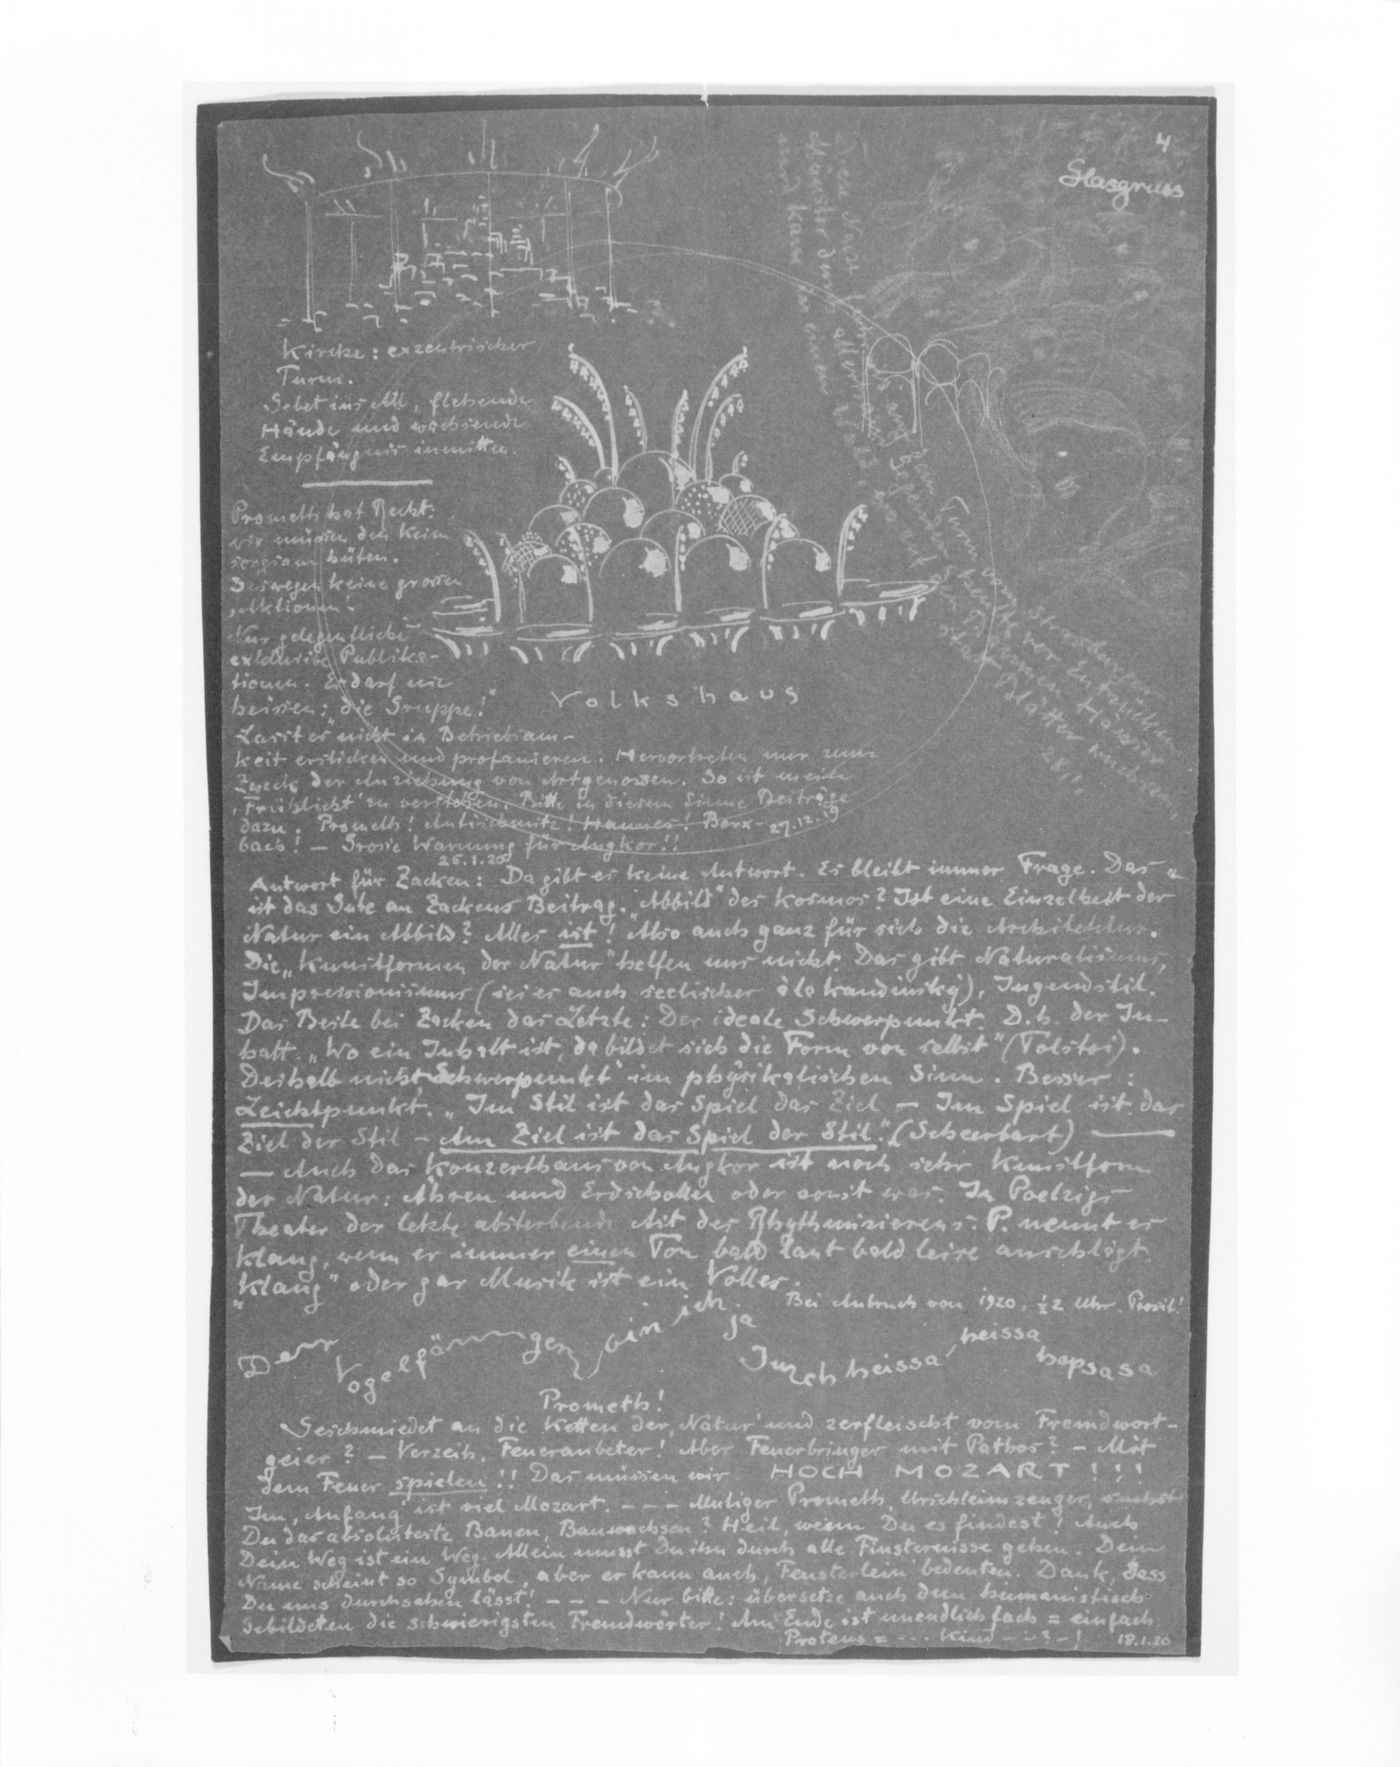 4
Glasgruss
Kirche: exzentrischer
Turm.
Gebet ins All, flehende
Hände und wachsende
Empfängnis inmitten.
Prometh hat Recht:
wir müssen den Keim
sorgsam hüten.
Deswegen keine grossen
"Aktionen".
Nur gelegentliche
exklusive Publika-
tionen. Er darf nie
heissen: "die Gruppe!"
Lasst es nicht in Betriebsam-
keit ersticken und profanieren. Hervortreten nur zum
Zweck der Anziehung von Artgenossen. So ist mein
"Frühlicht" zu verstehen. Bitte in diesem Sinne Beiträge
dazu. Prometh! Antischmitz! Hannes! Berx-
bach! — Grosse Warnung für Angkor!!
29.12.19
Volkshaus
Turm
vor Entrücken
Blätter rauschen,
28.1.
25.1.20
Antwort für Zacken: Da gibt es keine Antwort. Es bleibt immer Frage. Das
ist das Gute an Zackens Beitrag. "Abbild" des Kosmos? Ist eine Einzelheit der
Natur ein Abbild? Alles ist! Also auch ganz für sich die Architektur.
Die "Kunstformen der Natur" helfen uns nicht. Das gibt Naturalismus,
Impressionismus (sei es auch seelischer à la Kandinsky), Jugendstil.
Das Beste bei Zacken das Letzte: Der ideale Schwerpunkt. D.h. der In-
halt. "Wo ein Inhalt ist, da bildet sich die Form von selbst" (Tolstoi).
Deshalb nicht "Schwerpunkt" im physikalischen Sinn. Besser:
Leichtpunkt. "Im Stil ist das Spiel das Ziel — Im Spiel ist das
Ziel der Stil — Am Ziel ist das Spiel der Stil". (Scheerbart) —
— Auch das Konzerthaus von Angkor ist noch sehr Kunstform
der Natur: Ähren und Erdschollen oder sonst was. In Poelzigs
Theater der letzte absterbende Ast des Rhythmisierens. P. nennt es
Klang, wenn er immer einen Ton bald laut bald leise anschlägt
"Klang" oder gar Musik ist ein Volles.
Bei Anbruch von 1920, ½2 Uhr. Prosit!
Derr Vogelfännngerr bin ich ja
Juchheissa heissa hopsasa
Prometh!
Geschmiedet an die Ketten der 'Natur' und zerfleischt vom Fremdwort-
geier? — Verzeih, Feueranbeter! Aber Feuerbringer mit Pathos? — Mit
dem Feuer spielen!! Das müssen wir HOCH MOZART!!!
Im 'Anfang' ist viel Mozart. - - - Mutiger Prometh, Urschleimzeuger, suchst
Du das absoluteste Bauen, Bauwachsen? Heil, wenn Du es findest! Auch
Dein Weg ist ein Weg. Allein musst Du ihn durch alle Finsternisse gehen. Dein
Name scheint so Symbol, aber er kann auch 'Fensterlein' bedeuten. Dank, dass
Du uns durchsehen lässt! - - - Nur bitte: übersetze auch dem humanistisch
Gebildeten die schwierigsten Fremdwörter! Am Ende ist unendlichfach = einfach.
Proteus = - - - Kind - - ? - ! 18.1.20